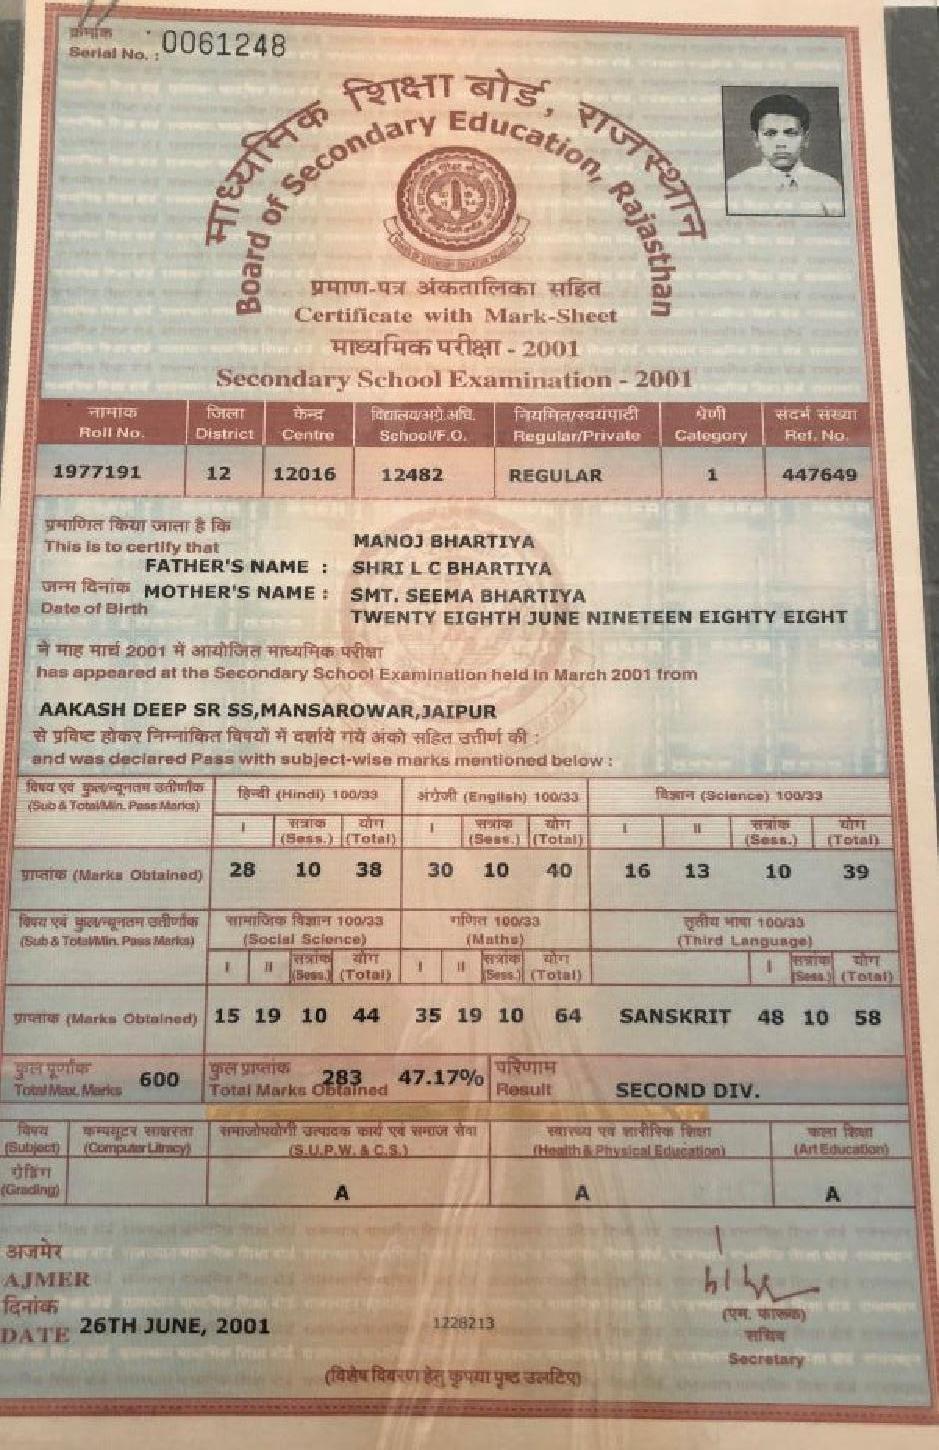 क्रमांक
Serial No. : 0061248
माध्यमिक शिक्षा बोर्ड, राजस्थान
Board of Secondary Education, Rajasthan
प्रमाण-पत्र अंकतालिका सहित
Certificate with Mark-Sheet
माध्यमिक परीक्षा - 2001
Secondary School Examination - 2001
नामांक जिला केन्द्र विद्यालय/अग्रे.अधि. नियमित/स्वयंपाठी श्रेणी संदर्भ संख्या
Roll No. District Centre School/F.O. Regular/Private Category Ref. No.
1977191 12 12016 12482 REGULAR 1 447649
प्रमाणित किया जाता है कि
This is to certify that MANOJ BHARTIYA
FATHER'S NAME : SHRI L C BHARTIYA
जन्म दिनांक MOTHER'S NAME : SMT. SEEMA BHARTIYA
Date of Birth TWENTY EIGHTH JUNE NINETEEN EIGHTY EIGHT
ने माह मार्च 2001 में आयोजित माध्यमिक परीक्षा
has appeared at the Secondary School Examination held in March 2001 from
AAKASH DEEP SR SS,MANSAROWAR,JAIPUR
से प्रविष्ट होकर निम्नांकित विषयों में दर्शाये गये अंको सहित उत्तीर्ण की :
and was declared Pass with subject-wise marks mentioned below :
विषय एवं कुल/न्यूनतम उतीर्णांक हिन्दी (Hindi) 100/33 अंग्रेजी (English) 100/33 विज्ञान (Science) 100/33
(Sub & Total/Min. Pass Marks)
I सत्रांक योग I सत्रांक योग I II सत्रांक योग
(Sess.) (Total) (Sess.) (Total) (Sess.) (Total)
प्राप्तांक (Marks Obtained) 28 10 38 30 10 40 16 13 10 39
विषय एवं कुल/न्यूनतम उतीर्णांक सामाजिक विज्ञान 100/33 गणित 100/33 तृतीय भाषा 100/33
(Sub & Total/Min. Pass Marks) (Social Science) (Maths) (Third Language)
I II सत्रांक योग I II सत्रांक योग I सत्रांक योग
(Sess.) (Total) (Sess.) (Total) (Sess.) (Total)
प्राप्तांक (Marks Obtained) 15 19 10 44 35 19 10 64 SANSKRIT 48 10 58
कुल पूर्णांक 600 कुल प्राप्तांक 283 47.17% परिणाम
Total Max. Marks Total Marks Obtained Result SECOND DIV.
विषय कम्प्यूटर साक्षरता समाजोपयोगी उत्पादक कार्य एवं समाज सेवा स्वास्थ्य एवं शारीरिक शिक्षा कला शिक्षा
(Subject) (Computer Litracy) (S.U.P.W. & C.S.) (Health & Physical Education) (Art Education)
ग्रेडिंग
(Grading) A A A
अजमेर
AJMER
दिनांक
DATE 26TH JUNE, 2001 1228213
(एम. फारूक)
सचिव
Secretary
(विशेष विवरण हेतु कृपया पृष्ठ उलटिए)